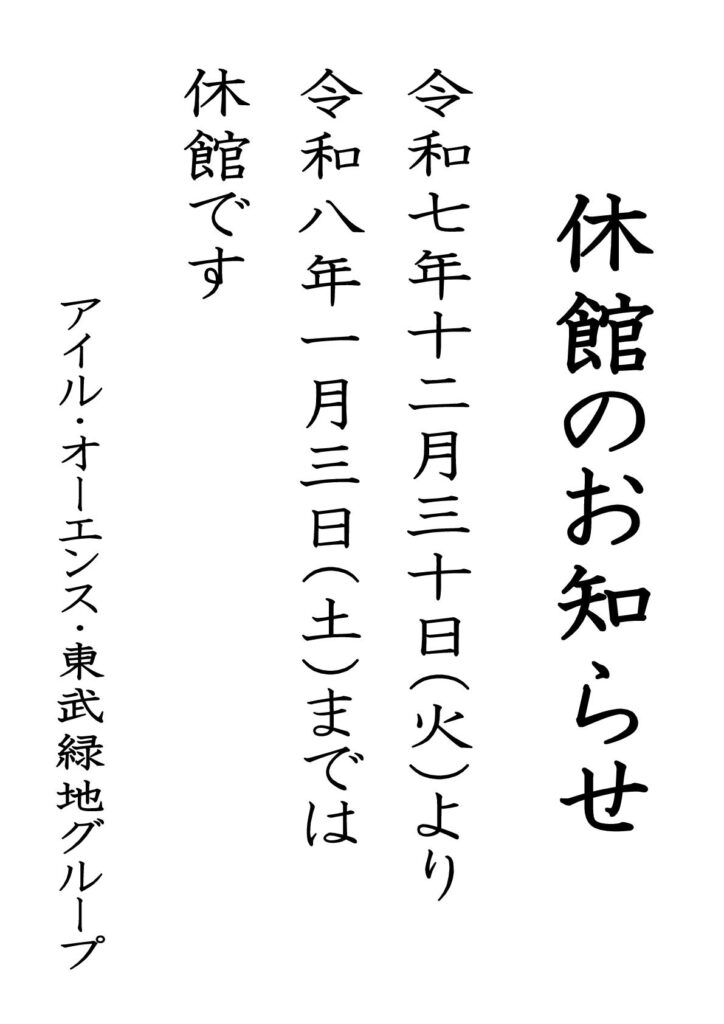 休館のお知らせ
令和七年十二月三十日(火)より
令和八年一月三日(土)までは
休館です
アイル・オーエンス・東武緑地グループ